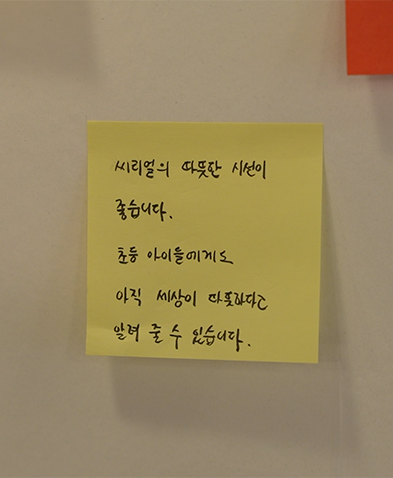 씨리얼의 따뜻한 시선이
좋습니다.
초등 아이들에게도
아직 세상이 따뜻하다고
알려 줄 수 있습니다.